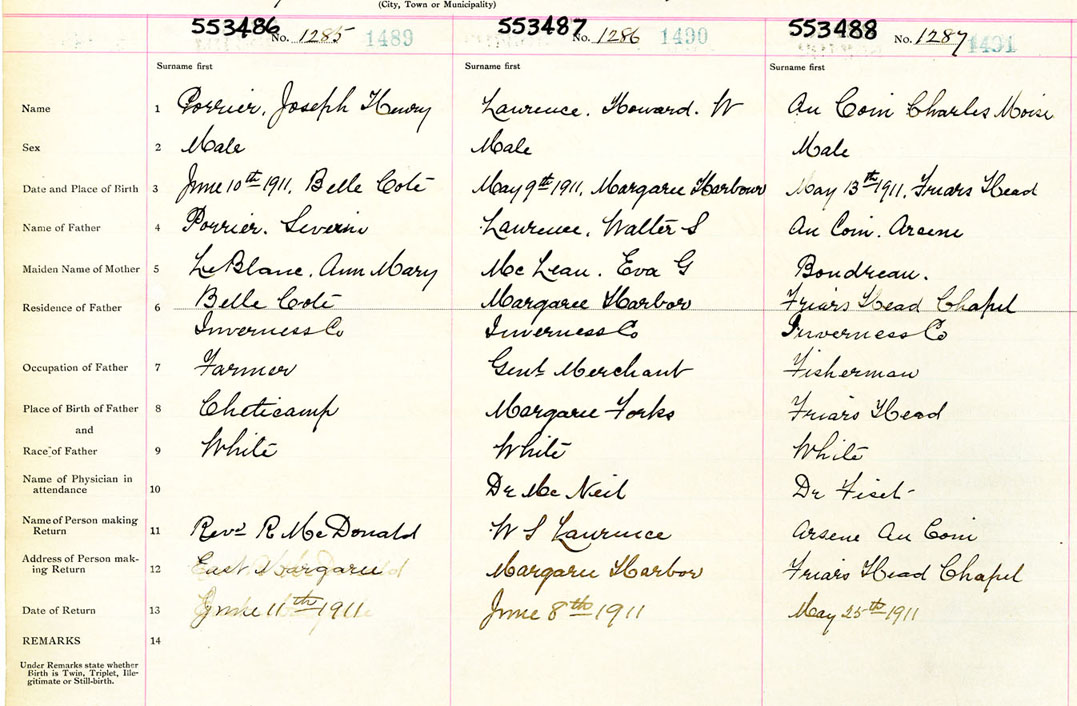 (City, Town or Municipality)
553486 No. 1285 1489 553487 No. 1286 1490 553488 No. 1287 1491
Surname first Surname first Surname first
Name 1 Porrier, Joseph Henry Laurence. Howard. W Au Coin Charles Moise
Sex 2 Male Male Male
Date and Place of Birth 3 June 10th 1911, Belle Coté May 9th 1911, Margaree Harbour May 13th 1911, Friars Head
Name of Father 4 Porrier. Severin Laurence, Walter S Au Coin. Arsene
Maiden Name of Mother 5 LeBlanc, Ann Mary McLean. Eva G Boudreau.
Residence of Father 6 Belle Coté Margaree Harbor Friars Head Chapel
Inverness Co Inverness Co Inverness Co
Occupation of Father 7 Farmer Genl Merchant Fisherman
Place of Birth of Father 8 Cheticamp Margaree Forks Friars Head
and
Race of Father 9 White White White
Name of Physician in
attendance 10 Dr McNeil Dr Fiset
Name of Person making
Return 11 Revd R McDonald W S Laurence Arsene Au Coin
Address of Person mak-
ing Return 12 East Margaree Margaree Harbor Friars Head Chapel
Date of Return 13 June 11th 1911 June 8th 1911 May 25th 1911
REMARKS 14
Under Remarks state whether
Birth is Twin, Triplet, Ille-
gitimate or Still-birth.